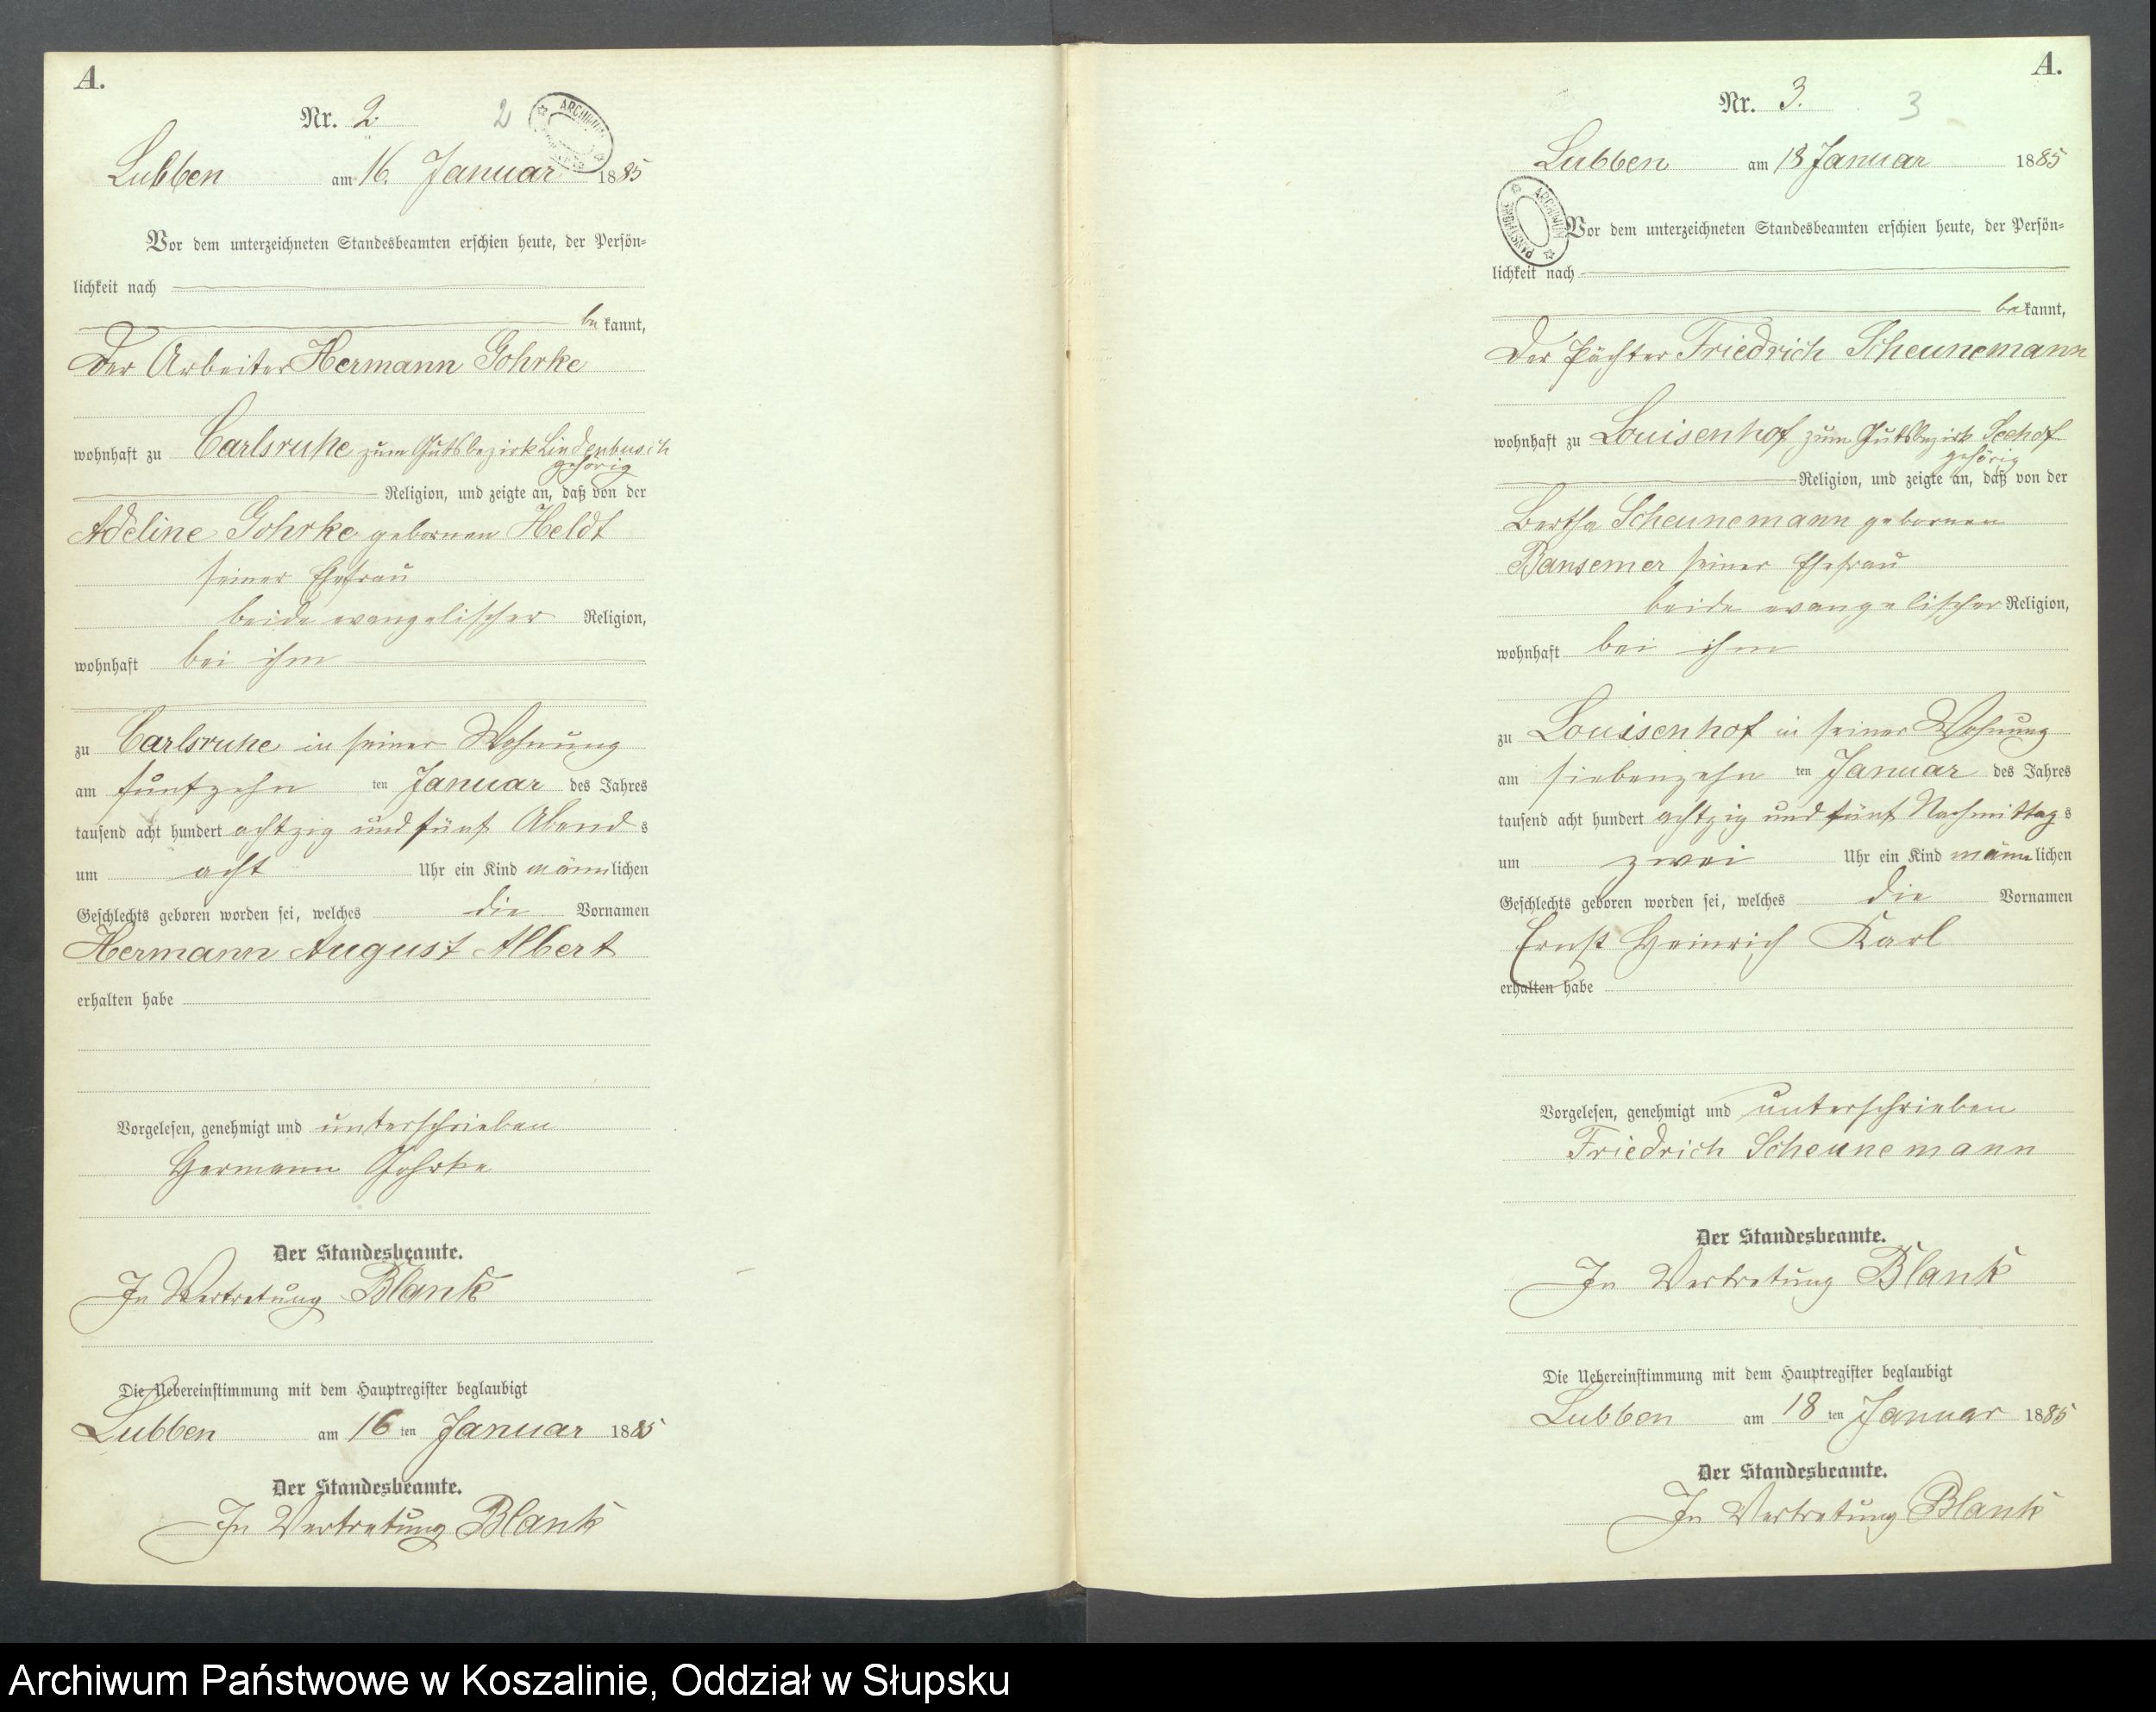 A.
Nr. 2.
2
ARCHIWUM
Lubben am 16. Januar 1885
Vor dem unterzeichneten Standesbeamten erschien heute, der Persön=
lichkeit nach
be kannt,
Der Arbeiter Hermann Gohrke
wohnhaft zu Carlsruhe zum Gutsbezirk Lindenbusch
gehörig
Religion, und zeigte an, daß von der
Adeline Gohrke gebornen Heldt
seiner Ehefrau
beide evangelischer Religion,
wohnhaft bei ihm
zu Carlsruhe in seiner Wohnung
am fünfzehn ten Januar des Jahres
tausend acht hundert achtzig und fünf Abend s
um acht Uhr ein Kind männlichen
Geschlechts geboren worden sei, welches die Vornamen
Hermann August Albert
erhalten habe
Vorgelesen, genehmigt und unterschrieben
Hermann Gohrke
Der Standesbeamte.
In Vertretung Blank
Die Uebereinstimmung mit dem Hauptregister beglaubigt
Lubben am 16 ten Januar 1885
Der Standesbeamte.
In Vertretung Blank
A.
Nr. 3.
3
Lubben am 18 Januar 1885
ARCHIWUM
Vor dem unterzeichneten Standesbeamten erschien heute, der Persön=
lichkeit nach
bekannt,
Der Pächter Friedrich Scheunemann
wohnhaft zu Louisenhof zum Gutsbezirk Seehof
gehörig
Religion, und zeigte an, daß von der
Bertha Scheunemann gebornen
Bansemer seiner Ehefrau
beide evangelischer Religion,
wohnhaft bei ihm
zu Louisenhof in seiner Wohnung
am siebenzehn ten Januar des Jahres
tausend acht hundert achtzig und fünf Nachmittag s
um zwei Uhr ein Kind männlichen
Geschlechts geboren worden sei, welches die Vornamen
Ernst Heinrich Karl
erhalten habe
Vorgelesen, genehmigt und unterschrieben
Friedrich Scheunemann
Der Standesbeamte.
In Vertretung Blank
Die Uebereinstimmung mit dem Hauptregister beglaubigt
Lubben am 18 ten Januar 1885
Der Standesbeamte.
In Vertretung Blank
Archiwum Państwowe w Koszalinie, Oddział w Słupsku